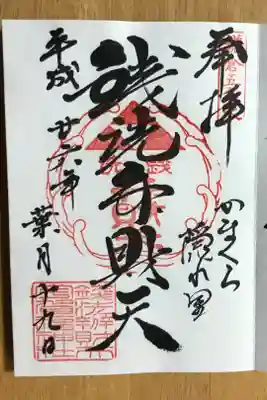 奉拝
かまくら
隠れ里
銭洗弁財天
平成廿六年
葉月十九日